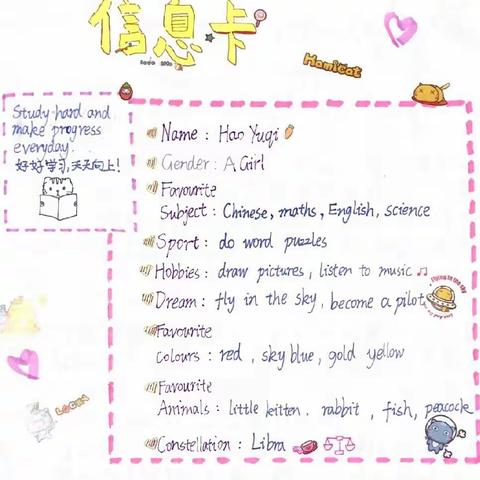 信息卡
Hamicat
Study hard and
make progress
everyday...
好好学习,天天向上!
Name : Hao Yuqi
Gender : A Girl
Favourite
Subject : Chinese, maths, English, science
Sport : do word puzzles
Hobbies : draw pictures, listen to music
Dream : fly in the sky, become a pilot
Favourite
colours : red , sky blue , gold yellow
Favourite
Animals : little kitten . rabbit , fish, peacock
Constellation : Libra